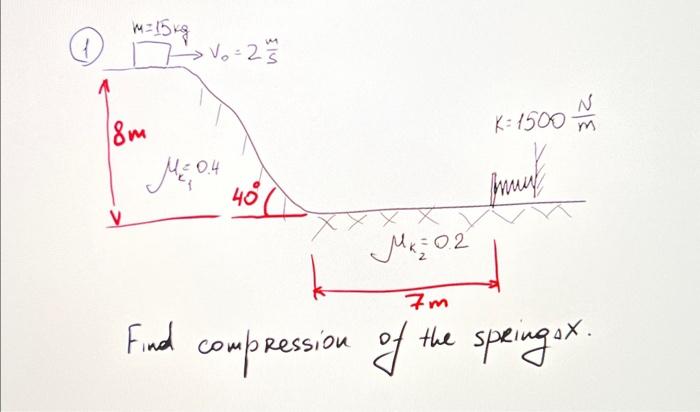 ① m=15kg
V₀=2 m/s
8m
K=1500 N/m
μk₁=0.4
40°
μk₂=0.2
7m
Find compression of the spring ΔX.